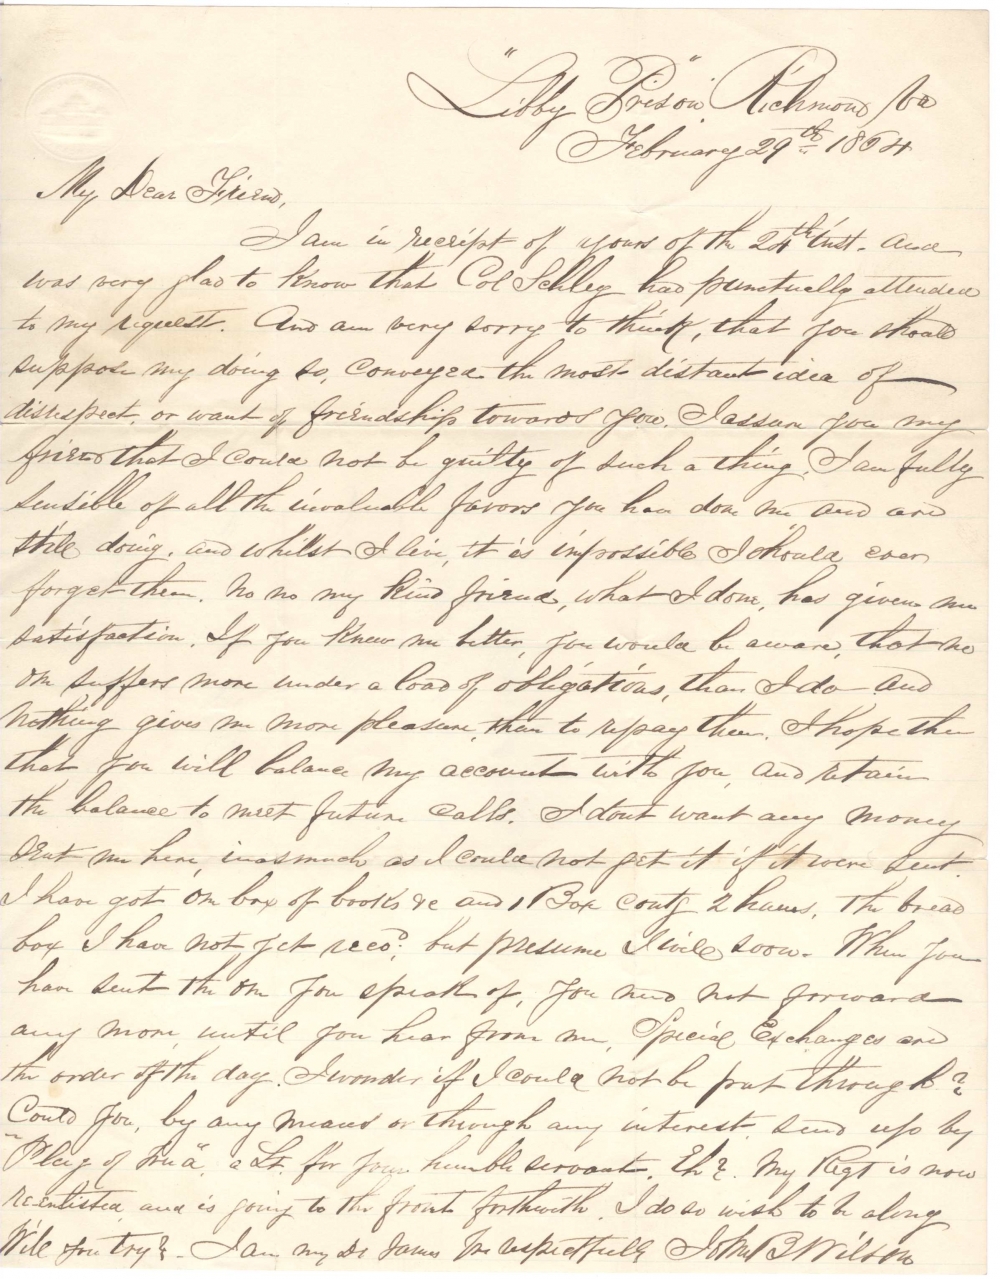 "Libby Prison" Richmond Va
February 29th 1864
My Dear Friend,
I am in receipt of yours of the 24th inst. and
was very glad to know that Col Schley had punctually attended
to my request. And am very sorry to think, that you should
suppose my doing so, conveyed the most distant idea of
disrespect, or want of friendship towards you. I assure you my
friend that I could not be guilty of such a thing. I am fully
sensible of all the invaluable favors you have done me and are
still doing, and whilst I live, it is impossible I should ever
forget them. No no my kind friend, what I done, has given me
satisfaction. If you knew me better, you would be aware, that no
one suffers more under a load of obligations, than I do and
nothing gives me more pleasure, than to repay them. I hope then
that you will balance my account with you, and retain
the balance to meet future calls. I dont want any money
sent me here, inasmuch as I could not get it if it were sent.
I have got one box of books &c and 1 Box contg 2 hams. The bread
box I have not yet recd, but presume I will soon. When you
have sent the one you speak of, you need not forward
any more until you hear from me. Special Exchanges are
the order of the day. I wonder if I could not be put through?
Could you, by any means or through any interest send up by
"Flag of Truce", a Lt. for your humble servant. Eh? My Regt is now
re-enlisted and is going to the front forthwith. I do so wish to be along
Will you try? I am my Dr James yrs respectfully John B Wilson